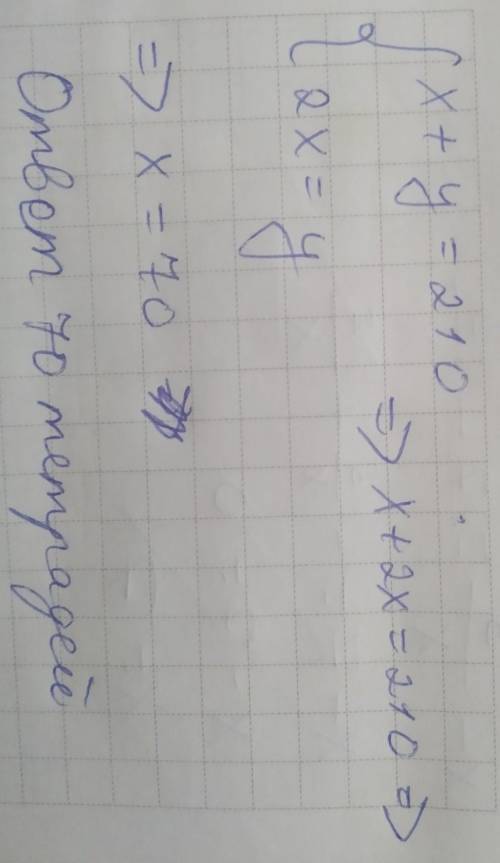 { x + y = 210
2x = y => x + 2x = 210 =>
=> x = 70
Ответ 70 тетрадей